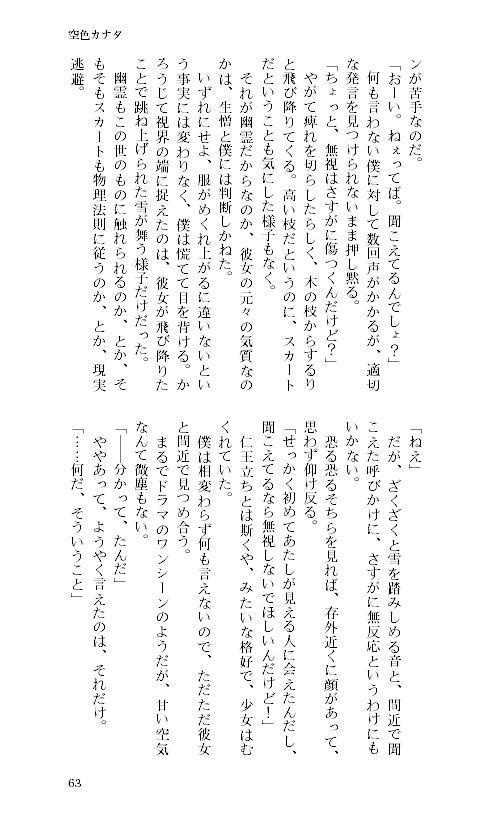 空色カナタ
ンが苦手なのだ。
「おーい。ねぇってば。聞こえてるんでしょ？」
何も言わない僕に対して数回声がかかるが、適切
な発言を見つけられないまま押し黙る。
「ちょっと、無視はさすがに傷つくんだけど？」
やがて痺れを切らしたらしく、木の枝からするり
と飛び降りてくる。高い枝だというのに、スカート
だということも気にした様子もなく。
それが幽霊だからなのか、彼女の元々の気質なの
かは、生憎と僕には判断しかねた。
いずれにせよ、服がめくれ上がるに違いないとい
う事実には変わりなく、僕は慌てて目を背ける。か
ろうじて視界の端に捉えたのは、彼女が飛び降りた
ことで跳ね上げられた雪が舞う様子だけだった。
幽霊もこの世のものに触れられるのか、とか、そ
もそもスカートも物理法則に従うのか、とか、現実
逃避。
「ねえ」
だが、ざくざくと雪を踏みしめる音と、間近で聞
こえた呼びかけに、さすがに無反応というわけにも
いかない。
恐る恐るそちらを見れば、存外近くに顔があって、
思わず仰け反る。
「せっかく初めてあたしが見える人に会えたんだし、
聞こえてるなら無視しないでほしいんだけど！」
仁王立ちとは斯くや、みたいな格好で、少女はむ
くれていた。
僕は相変わらず何も言えないので、ただただ彼女
と間近で見つめ合う。
まるでドラマのワンシーンのようだが、甘い空気
なんて微塵もない。
「――分かって、たんだ」
ややあって、ようやく言えたのは、それだけ。
「……何だ、そういうこと」
63